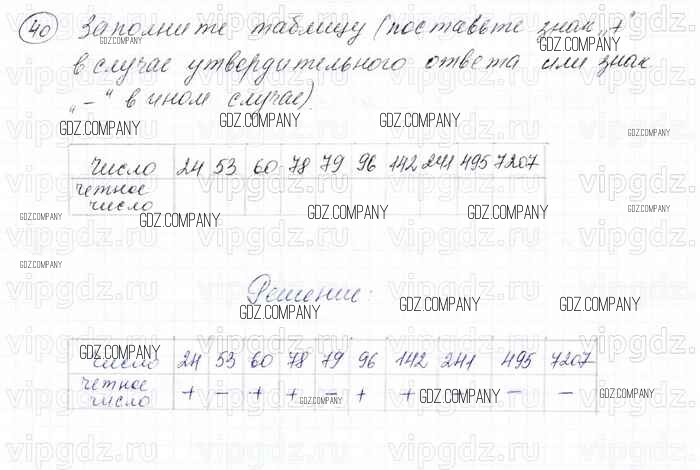 40 Заполните таблицу (поставьте знак „+“
в случае утвердительного ответа или знак
„–“ в ином случае).
Число 24 53 60 78 79 96 142 241 495 7207
четное
число
Решение:
Число 24 53 60 78 79 96 142 241 495 7207
четное
число + – + + – + + – – –
GDZ.COMPANY
vipgdz.ru